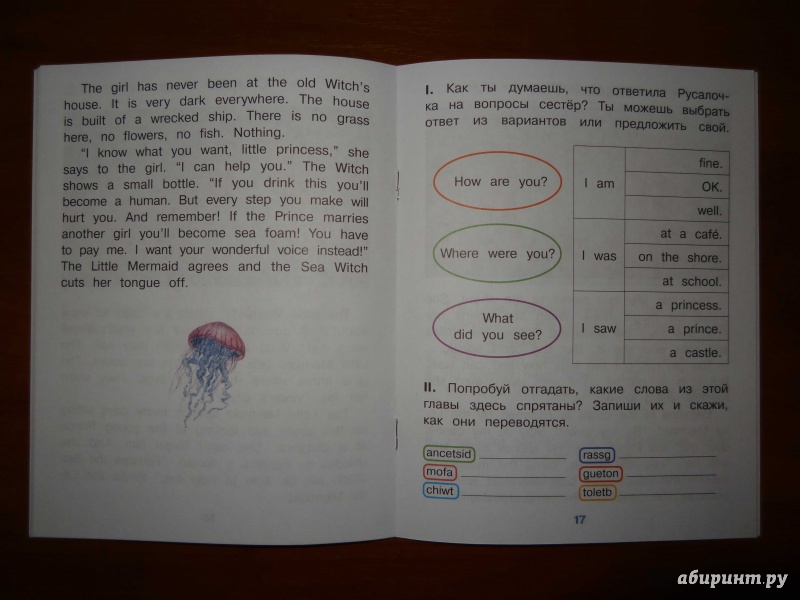 The girl has never been at the old Witch's
house. It is very dark everywhere. The house
is built of a wrecked ship. There is no grass
here, no flowers, no fish. Nothing.
“I know what you want, little princess,” she
says to the girl. “I can help you.” The Witch
shows a small bottle. “If you drink this you'll
become a human. But every step you make will
hurt you. And remember! If the Prince marries
another girl you'll become sea foam! You have
to pay me. I want your wonderful voice instead!”
The Little Mermaid agrees and the Sea Witch
cuts her tongue off.
I. Как ты думаешь, что ответила Русалоч-
ка на вопросы сестёр? Ты можешь выбрать
ответ из вариантов или предложить свой.
How are you?
I am
fine.
OK.
well.
Where were you?
I was
at a café.
on the shore.
at school.
What
did you see?
I saw
a princess.
a prince.
a castle.
II. Попробуй отгадать, какие слова из этой
главы здесь спрятаны? Запиши их и скажи,
как они переводятся.
ancetsid
rassg
mofa
gueton
chiwt
toletb
17
абиринт.ру